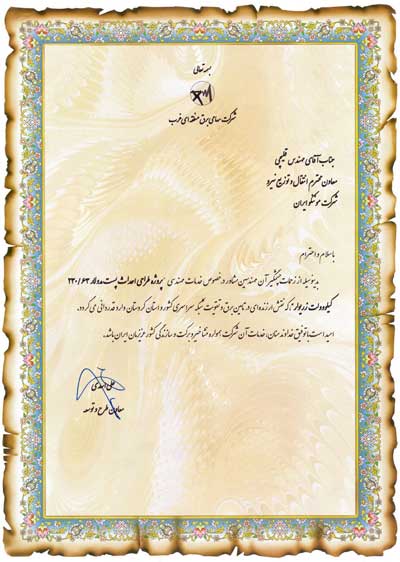 بسمه تعالی
شرکت سهامی برق منطقه ای غرب
جناب آقای مهندس قلیچی
معاون محترم انتقال و توزیع نیرو
شرکت موننکو ایران
با سلام و احترام
بدینوسیله از زحمات پیگیر آن مهندسین مشاور در خصوص خدمات مهندسی "پروژه طراحی احداث پست مدولار ۲۳۰/۶۳
کیلوولت زریوار" که نقش ارزنده ای در تامین برق و تقویت شبکه سراسری کشور و استان کردستان دارد قدردانی می گردد.
امید است با توفیق خداوند منان، خدمات آن شرکت همواره منشا خیر و برکت و سازندگی کشور عزیزمان ایران باشد.
علی اسدی
معاون طرح و توسعه